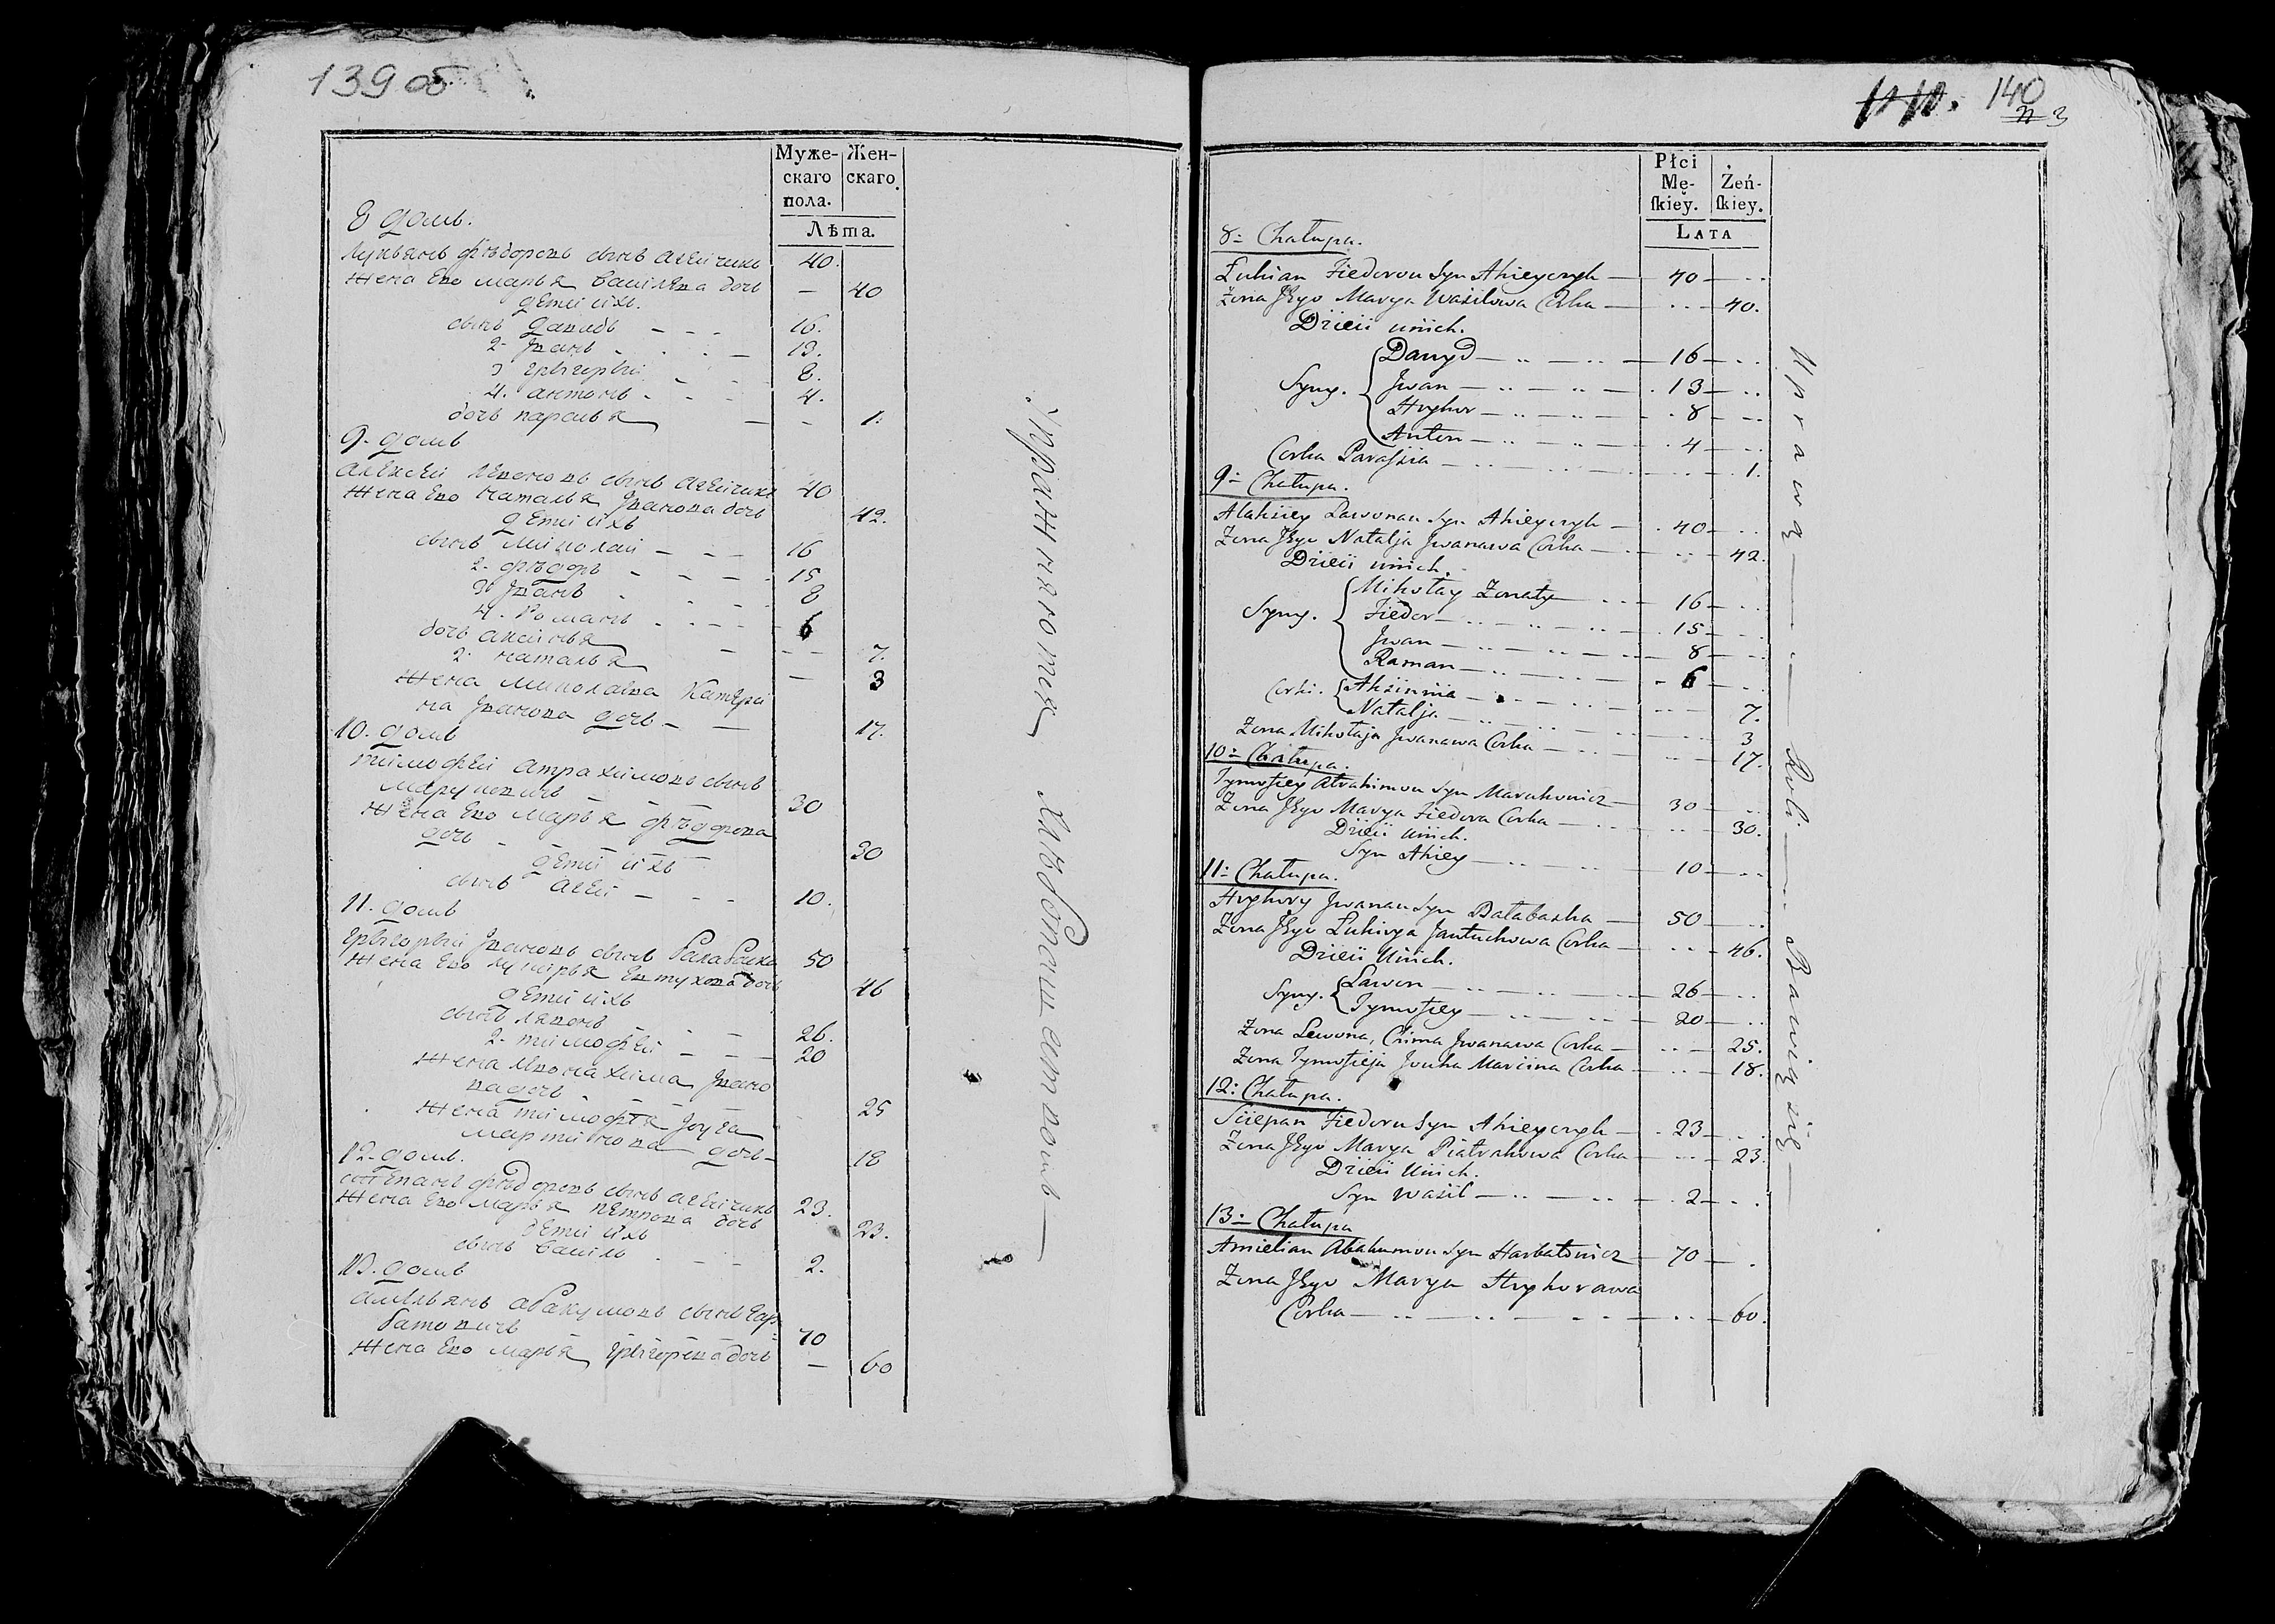 139 об
Муже-
скаго
пола.
Жен-
скаго.
Лѣта.
8 домъ.
Лукьянъ Фѣдоровъ сынъ Агейчикъ 40.
жена Ево Марья Василева дочь — 40
дети ихъ.
сынъ Данидъ — — — 16.
2- Иванъ - - - — 13.
3 Грыгерый - - 8.
4. антонъ - - - 4.
дочь парасья — - 1.
9. домъ
Алексей Левоновъ сынъ Агейчикъ 40
жена Ево Наталья Иванова дочь 42.
дети ихъ
сынъ Миколай — - — 16
2- Фѣдоръ - - - - 15
3 Иванъ - - - 8
4. Романъ - - - - 6
дочь аксинья - - — 7.
2. Наталья — 3
жена Миколаева Катери
на Иванова дочь — — 17.
10. домъ
тимофей атрахимовъ сынъ
Марукевичъ — 30
жена Ево Марья Фѣдорова
дочь - - — — 30
дети ихъ
сынъ агей — - - 10.
11. домъ
Грыгорый Ивановъ сынъ Балабашка 50
жена Ево лукирья Евтухова дочь 46
дети ихъ
сынъ лявонъ - - - 26.
2- тимофей — - — 20
жена Ивано
ва дочь - — — — 25
жена тимофѣя
Мартинова дочь — 18
12- домъ.
степанъ Фѣдоровъ сынъ агейчикъ 23.
жена Ево Марья петрова дочь 23.
дети ихъ
сынъ Василь - - - 2.
13. домъ
амельянъ абакумовъ сынъ Гар-
батовичъ — — — 70
жена Ево Марья Грыгорева дочь — 60
Упражняются Хлѣбопашествомъ —
140
3
Płci
Mę-
ſkiey.
Żeń-
ſkiey.
Lata
8= Chałupa.
Łukian Fiedorou Syn Ahieyczyk — 40 — . .
Żona Jego Marya Wasilowa Corka — . . — 40.
Dzieci unich.
Syny. { Danyd — .. — .. — 16 — . .
Jwan — .. — .. — 13 — . .
Hryhor — .. — .. — 8 — . .
Anton — .. — .. — 4 — . .
Corka Paraſzia — .. — .. — 1.
9= Chałupa.
Alaksiey Lawonau Syn Ahieyczyk — 40 — . .
Żona Jego Natalja Jwanawa Corka — . . — 42.
Dzieci unich.
Syny. { Mikołay Żonaty — .. — 16 — . .
Fiedor — .. — .. — 15 — . .
Jwan — .. — .. — 8 — . .
Raman — .. — .. — 6 — . .
Corki. { Aksinnia — .. — .. — 7.
Natalja — .. — .. — 3
Żona Mikołaja Jwanawa Corka — .. — 17.
10= Chałupa.
Tymofiey Atrahimou Syn Marukowicz — 30 — . .
Żona Jego Marya Fiedora Corka — .. — 30.
Dzieci Unich.
Syn Ahiey — .. — .. — 10 — . .
11= Chałupa.
Hryhory Jwanau Syn Bałabaska — 50 — . .
Żona Jego Łukirya Jautuchowa Corka — .. — 46.
Dzieci Unich.
Syny. { Lawon — .. — .. — 26 — . .
Tymofiey — .. — .. — 20 — . .
Żona Lewona, Chima Jwanawa Corka — .. — 25.
Żona Tymofieja Jouha Marcina Corka — .. — 18.
12: Chałupa.
Sciepan Fiedoru Syn Ahieyczyk — 23 — . .
Żona Jego Marya Piatrakowa Corka — .. — 23.
Dzieci Unich.
Syn Wasil — .. — .. — 2 — . .
13= Chałupa
Amielian Abakumou Syn Harbatowicz — 70 — .
Żona Jego Marya Hryhorawa
Corka — .. — .. — .. — 60.
Uprawą — Roli — Bawią się —